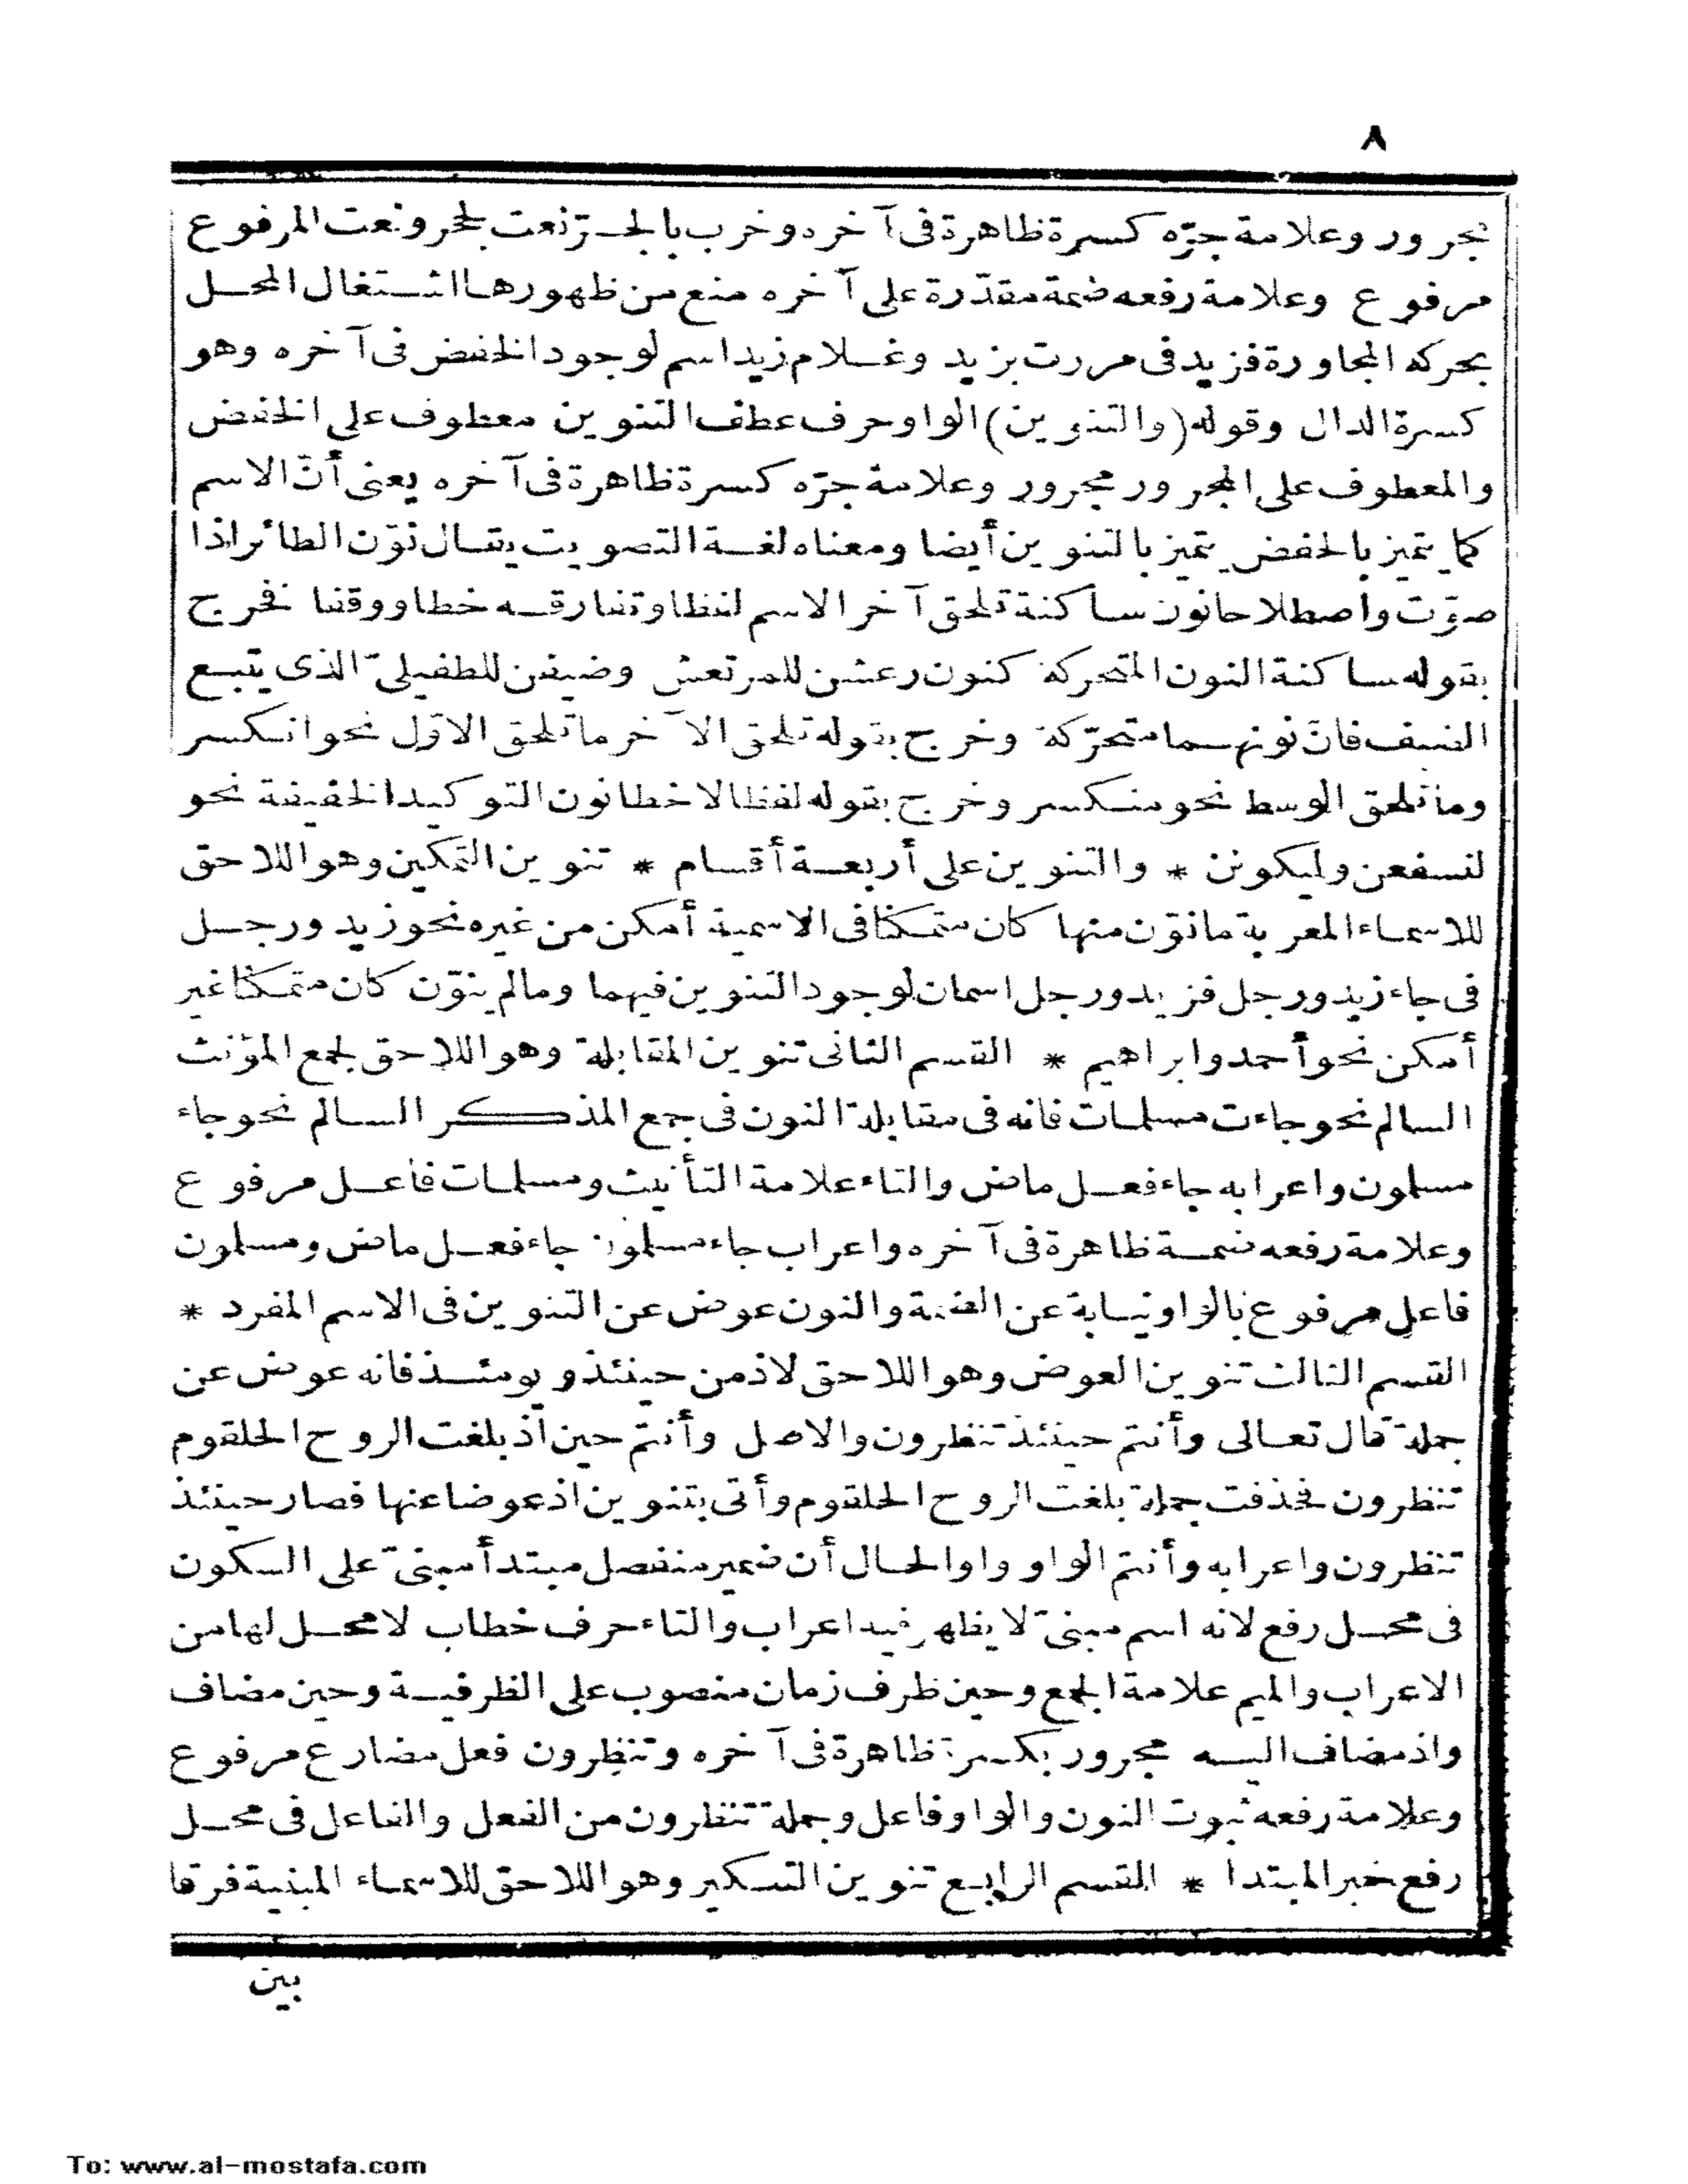 ٨
مجرور وعلامة جرّه كسرة ظاهرة فى آخره وخرب بالجرّ نعت لجحر ونعت المرفوع
مرفوع وعلامة رفعه ضمة مقدّرة على آخره منع من ظهورها اشتغال المحل
بحركه المجاورة فزيد فى مررت بزيد وغلام زيد اسم لوجود الخفض فى آخره وهو
كسرة الدال وقوله (والتنوين) الواو حرف عطف التنوين معطوف على الخفض
والمعطوف على المجرور مجرور وعلامة جرّه كسرة ظاهرة فى آخره يعنى أنّ الاسم
كما يتميز بالخفض يتميز بالتنوين أيضا ومعناه لغة التصويت يقال نوّن الطائر اذا
صوّت واصطلاحا نون ساكنة تلحق آخر الاسم لفظا وتفارقه خطا ووقفا فخرج
بقوله ساكنة النون المتحركة كنون رعشن للمرتعش وضيفن للطفيلىّ الذى يتبع
الضيف فانّ نونهما متحرّكة وخرج بقوله تلحق الآخر ما تلحق الاوّل نحو انكسر
وما تلحق الوسط نحو منكسر وخرج بقوله لفظا لا خطا نون التوكيد الخفيفة نحو
لنسفعن وليكونن * والتنوين على أربعة أقسام * تنوين التمكين وهو اللاحق
للاسماء المعربة ما نوّن منها كان متمكنا فى الاسمية أمكن من غيره نحو زيد ورجل
فى جاء زيد ورجل فزيد ورجل اسمان لوجود التنوين فيهما وما لم ينوّن كان متمكنا غير
أمكن نحو أحمد وابراهيم * القسم الثانى تنوين المقابلة وهو اللاحق لجمع المؤنث
السالم نحو جاءت مسلمات فانه فى مقابلة النون فى جمع المذكر السالم نحو جاء
مسلمون واعرابه جاء فعل ماض والتاء علامة التأنيث ومسلمات فاعل مرفوع
وعلامة رفعه ضمة ظاهرة فى آخره واعراب جاء مسلمون جاء فعل ماض ومسلمون
فاعل مرفوع بالواو نيابة عن الضمة والنون عوض عن التنوين فى الاسم المفرد *
القسم الثالث تنوين العوض وهو اللاحق لاذ من حينئذ ويومئذ فانه عوض عن
جملة قال تعالى وأنتم حينئذ تنظرون والاصل وأنتم حين اذ بلغت الروح الحلقوم
تنظرون فحذفت جملة بلغت الروح الحلقوم وأتى بتنوين اذ عوضا عنها فصار حينئذ
تنظرون واعرابه وأنتم الواو واو الحال أن ضمير منفصل مبتدأ مبنىّ على السكون
فى محل رفع لانه اسم مبنىّ لا يظهر فيه اعراب والتاء حرف خطاب لا محل لها من
الاعراب والميم علامة الجمع وحين ظرف زمان منصوب على الظرفية وحين مضاف
واذ مضاف اليه مجرور بكسرة ظاهرة فى آخره وتنظرون فعل مضارع مرفوع
وعلامة رفعه ثبوت النون والواو فاعل وجملة تنظرون من الفعل والفاعل فى محل
رفع خبر المبتدا * القسم الرابع تنوين التنكير وهو اللاحق للاسماء المبنية فرقا
بين
To: www.al-mostafa.com